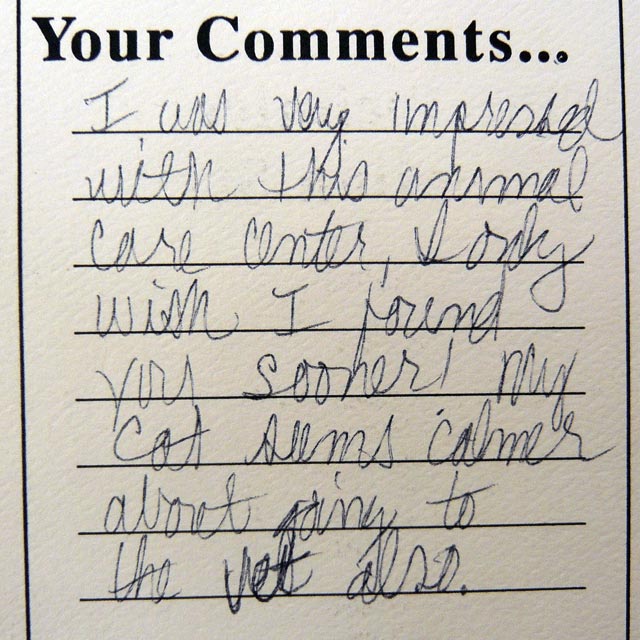 Your Comments...
I was very impressed
with this animal
care center, I only
wish I found
you sooner! My
cat seems calmer
about going to
the vet also.